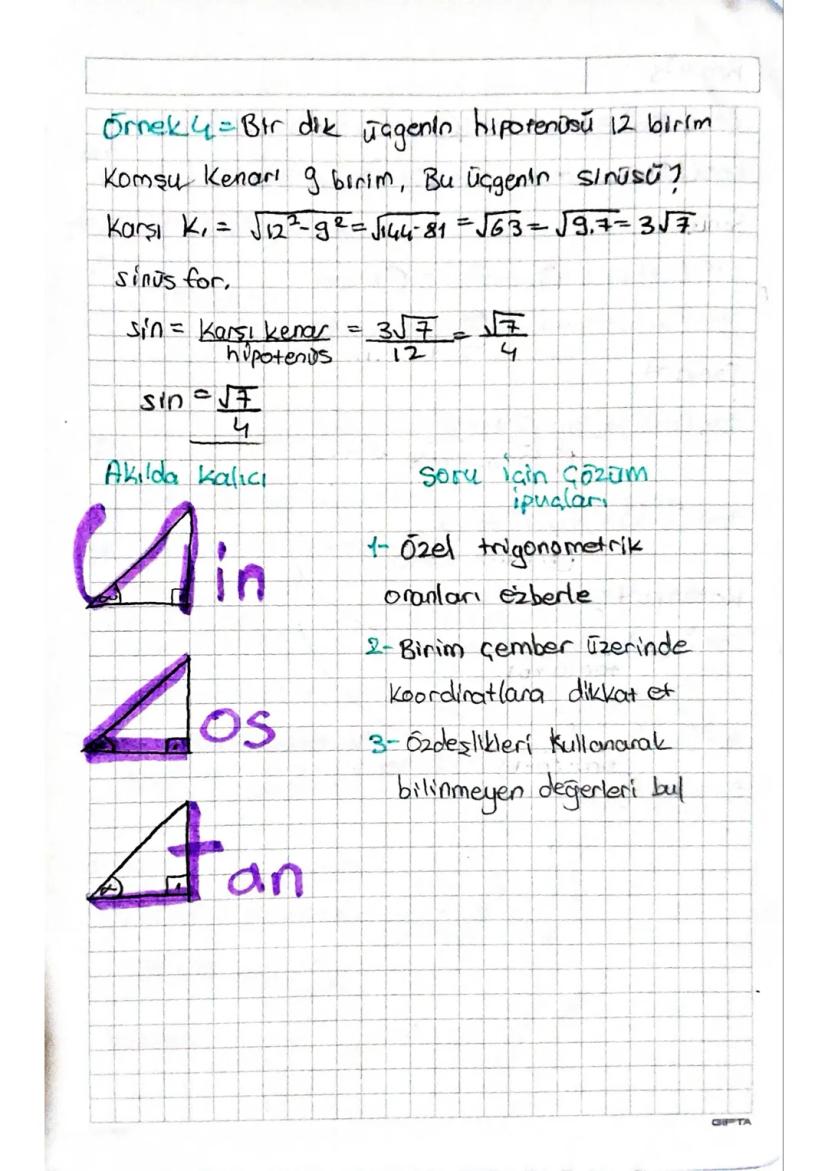 Örnek 4 = Bir dik üçgenin hipotenüsü 12 birim
Komşu Kenarı 9 birim, Bu üçgenin sinüsü?
Karşı K, = √12²-9² = √144-81 = √63 = √9.7 = 3√7
sinüs for.
sin = Karşı kenar / hipotenüs = 3√7 / 12 = √7 / 4
sin = √7 / 4
Akılda Kalıcı
Sin
α
Cos
tan
α
Soru için Çözüm
ipuçları
1- Özel trigonometrik
oranları ezberle
2- Birim çember üzerinde
Koordinatlara dikkat et
3- Özdeşlikleri Kullanarak
bilinmeyen değerleri bul
GIPTA